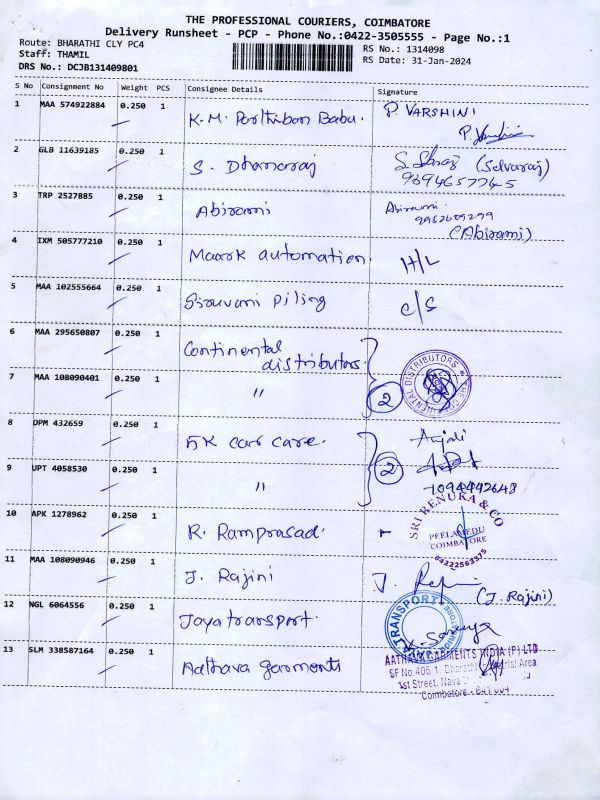 THE PROFESSIONAL COURIERS, COIMBATORE
Delivery Runsheet - PCP - Phone No.:0422-3505555 - Page No.:1
Route: BHARATHI CLY PC4
RS No.: 1314098
Staff: THAMIL
RS Date: 31-Jan-2024
DRS No.: DCJB131409801
S No Consignment No Weight PCS Consignee Details Signature
1 MAA 574922884 0.250 1 K.M. Parthiban Babu. P. VARSHINI
P.
2 GLB 11639185 0.250 1 S. Dhanaraj (Selvaraj)
9694657745
3 TRP 2527885 0.250 1 Abirami Abirami.
9952609299
(Abirami)
4 IXM 505777210 0.250 1 Maark automation. H/L
5 MAA 102555664 0.250 1 Siruvani Piling c/s
6 MAA 295650807 0.250 1 Continental
distributors.
7 MAA 108090401 0.250 1 " 2
8 DPM 432659 0.250 1 5K car care. Anjali
9 UPT 4058530 0.250 1 " 2
7094442648
10 APK 1278962 0.250 1 R. Ramprasad. SRI RENUKA & CO
PEELAMEDU
COIMBATORE
04222563375
11 MAA 108090946 0.250 1 J. Rajini J.
(J. Rajini)
12 NGL 6064556 0.250 1 Jaya transport. TRANSPORT
13 SLM 338587164 0.250 1 Aathava garments AATHAVA GARMENTS INDIA (P) LTD
SF No.406 1, Bharathi Area
1st Street, Nava
Coimbatore - 641 004